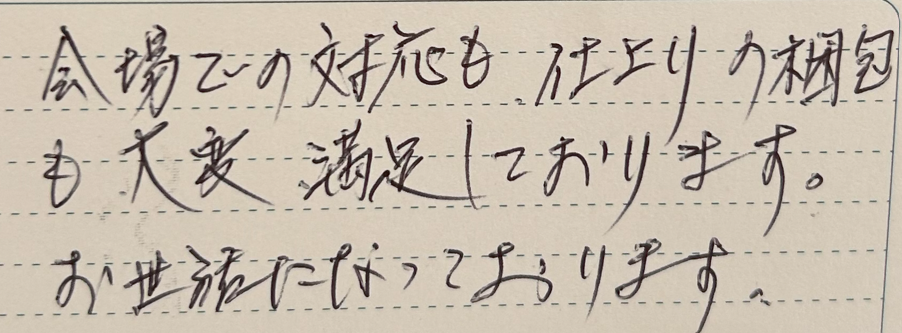 会場での対応も、仕上りの梱包
も大変満足しております。
お世話になっております。